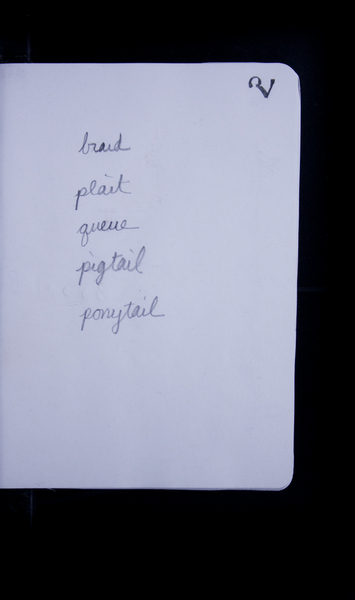 braid
plait
queue
pigtail
ponytail